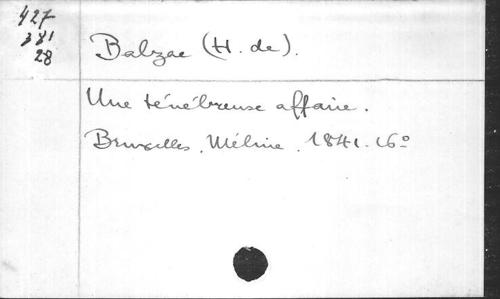 427
381
28
Balzac (H. de).
Une ténébreuse affaire.
Bruxelles, Méline, 1841. 16º